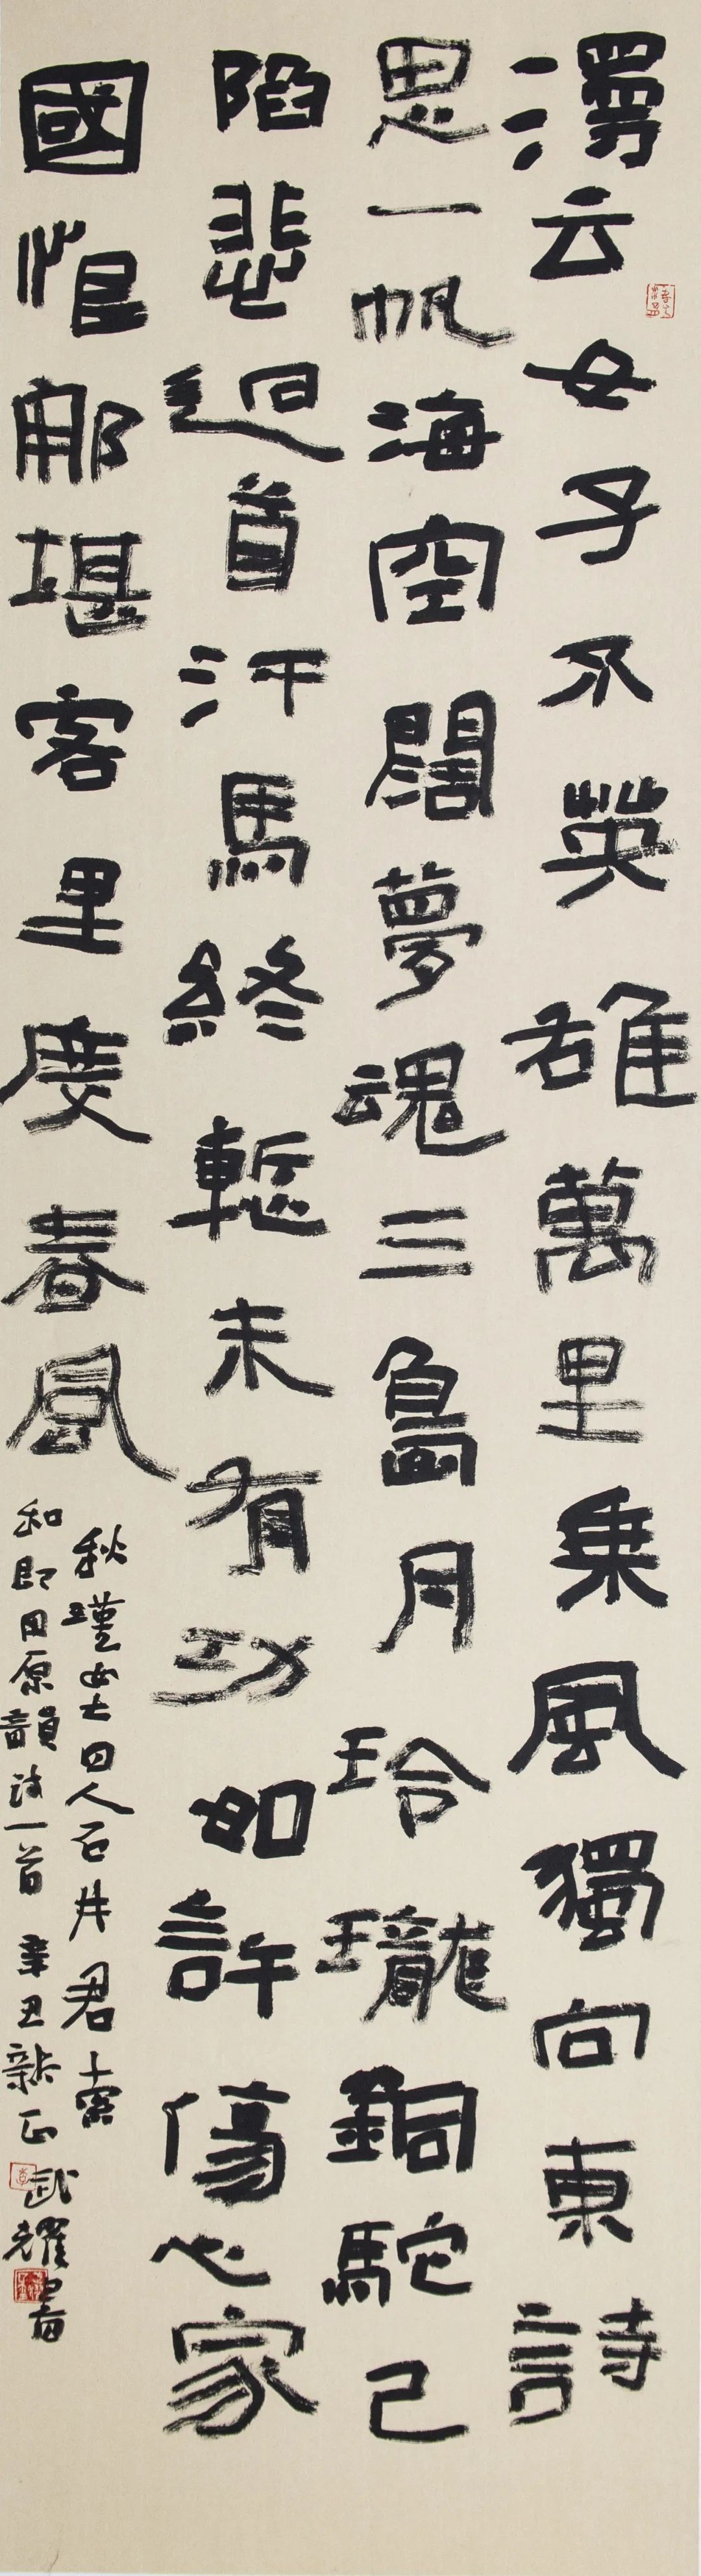 漫云女子不英雄萬里乘風獨向東詩
思一帆海空闊夢魂三島月玲瓏銅駝已
陷悲迴首汗馬終慙未有功如許傷心家
國恨那堪客里度春風
秋瑾女士日人石井君索
和即用原韻詩一首 辛丑新正 武耀書